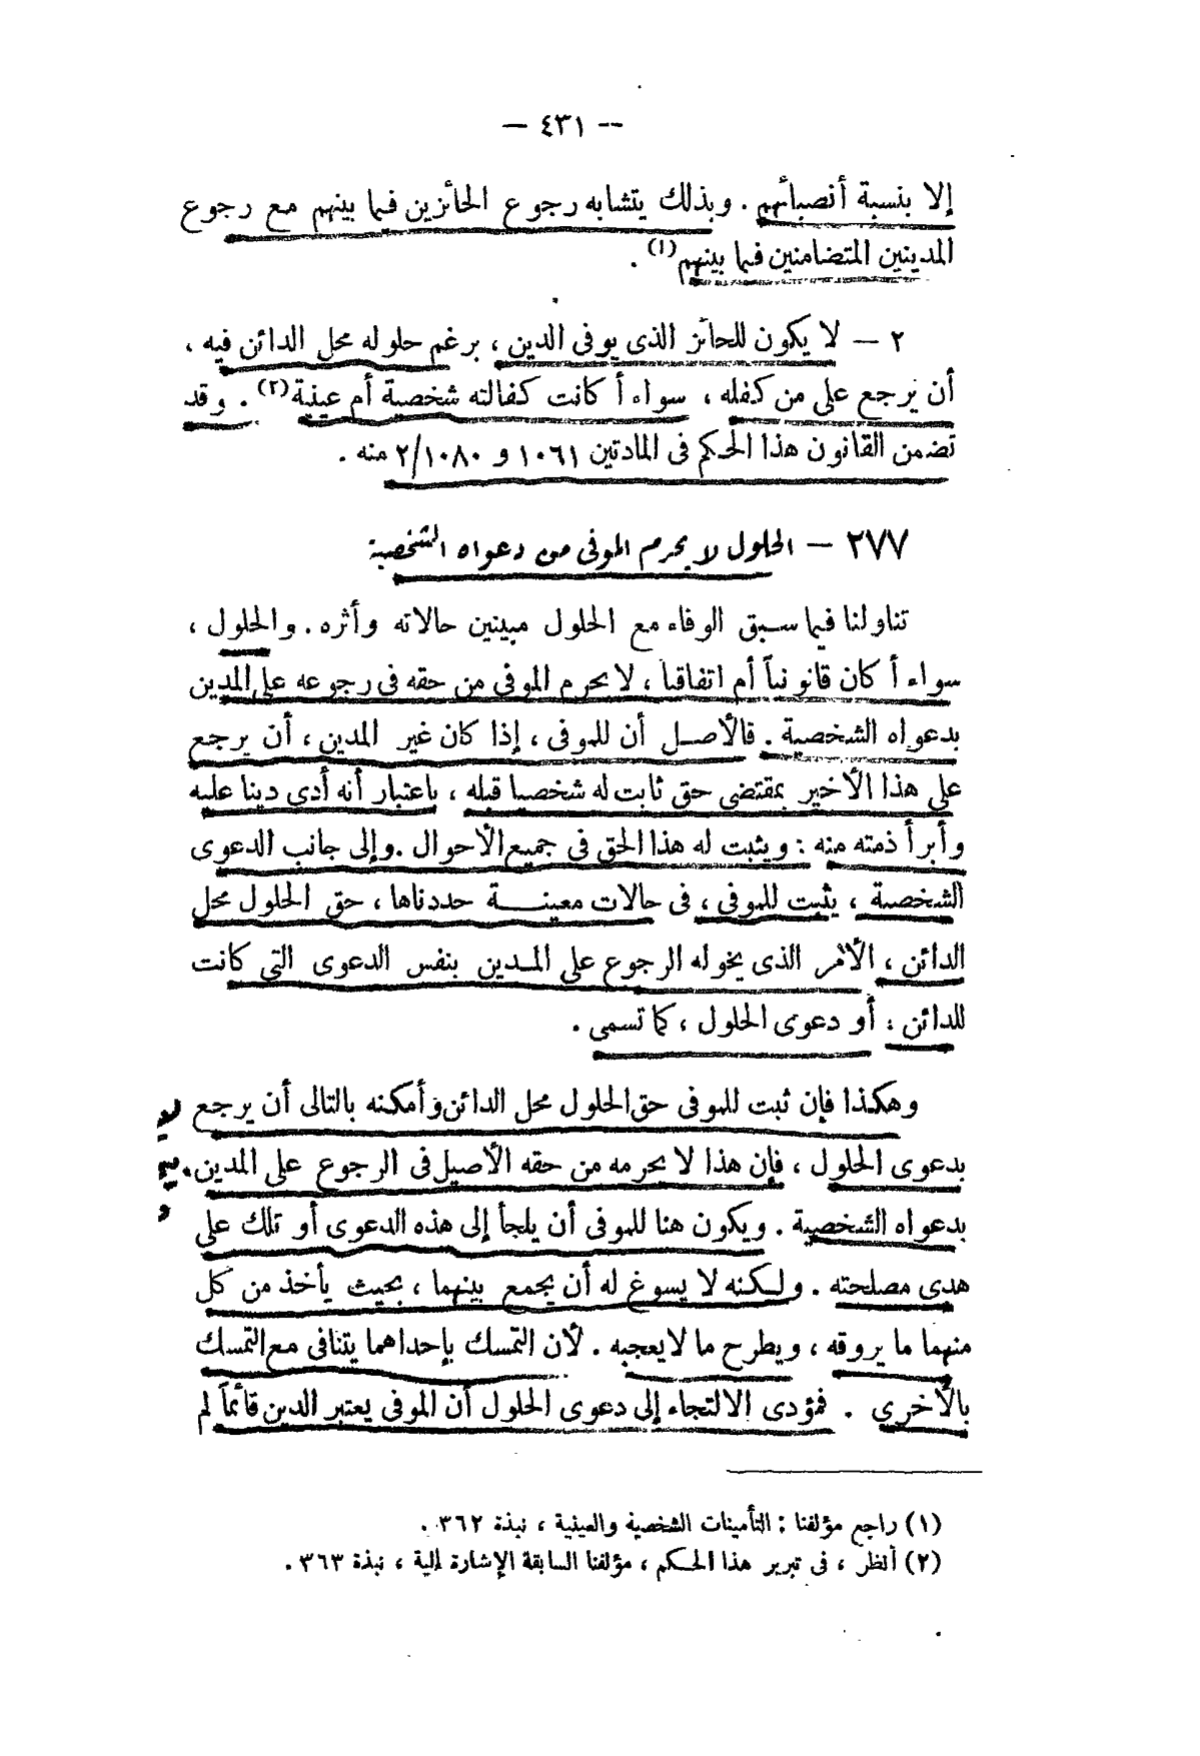 -- ٤٣١ —
إلا بنسبة أنصبائهم . وبذلك يتشابه رجوع الحائزين فيما بينهم مع رجوع
المدينين المتضامنين فيما بينهم (١) .
٢ — لا يكون للحائز الذى يوفى الدين ، برغم حلوله محل الدائن فيه ،
أن يرجع على من كفله ، سواء أ كانت كفالته شخصية أم عينية (٢) . وقد
تضمن القانون هذا الحكم فى المادتين ١٠٦١ و ٢/١٠٨٠ منه .
٢٧٧ — الحلول لا يحرم الموفى من دعواه الشخصية
تناولنا فيما سبق الوفاء مع الحلول مبينين حالاته وأثره . والحلول ،
سواء أ كان قانونياً أم اتفاقياً ، لا يحرم الموفى من حقه فى رجوعه على المدين
بدعواه الشخصية . فالأصل أن للموفى ، إذا كان غير المدين ، أن يرجع
على هذا الأخير بمقتضى حق ثابت له شخصيا قبله ، باعتبار أنه أدى دينا عليه
وأبرأ ذمته منه : ويثبت له هذا الحق فى جميع الأحوال . وإلى جانب الدعوى
الشخصية ، يثبت للموفى ، فى حالات معينة حددناها ، حق الحلول محل
الدائن ، الأمر الذى يخوله الرجوع على المدين بنفس الدعوى التى كانت
للدائن : أو دعوى الحلول ، كما تسمى .
وهكذا فإن ثبت للموفى حق الحلول محل الدائن وأمكنه بالتالى أن يرجع
بدعوى الحلول ، فإن هذا لا يحرمه من حقه الأصيل فى الرجوع على المدين .
بدعواه الشخصية . ويكون هنا للموفى أن يلجأ إلى هذه الدعوى أو تلك على
هدى مصلحته . ولكنه لا يسوغ له أن يجمع بينهما ، بحيث يأخذ من كل
منهما ما يروقه ، ويطرح ما لا يعجبه . لأن التمسك بإحداهما يتنافى مع التمسك
بالأخرى . فمؤدى الالتجاء إلى دعوى الحلول أن الموفى يعتبر الدين قائماً لم
(١) راجع مؤلفنا : التأمينات الشخصية والعينية ، نبذة ٣٦٢ .
(٢) أنظر ، فى تبرير هذا الحكم ، مؤلفنا السابقة الإشارة إلية ، نبذة ٣٦٣ .